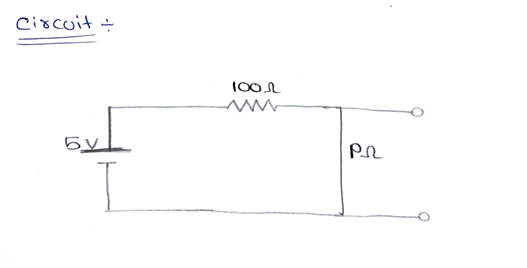 Circuit ÷
100Ω
5V
PΩ